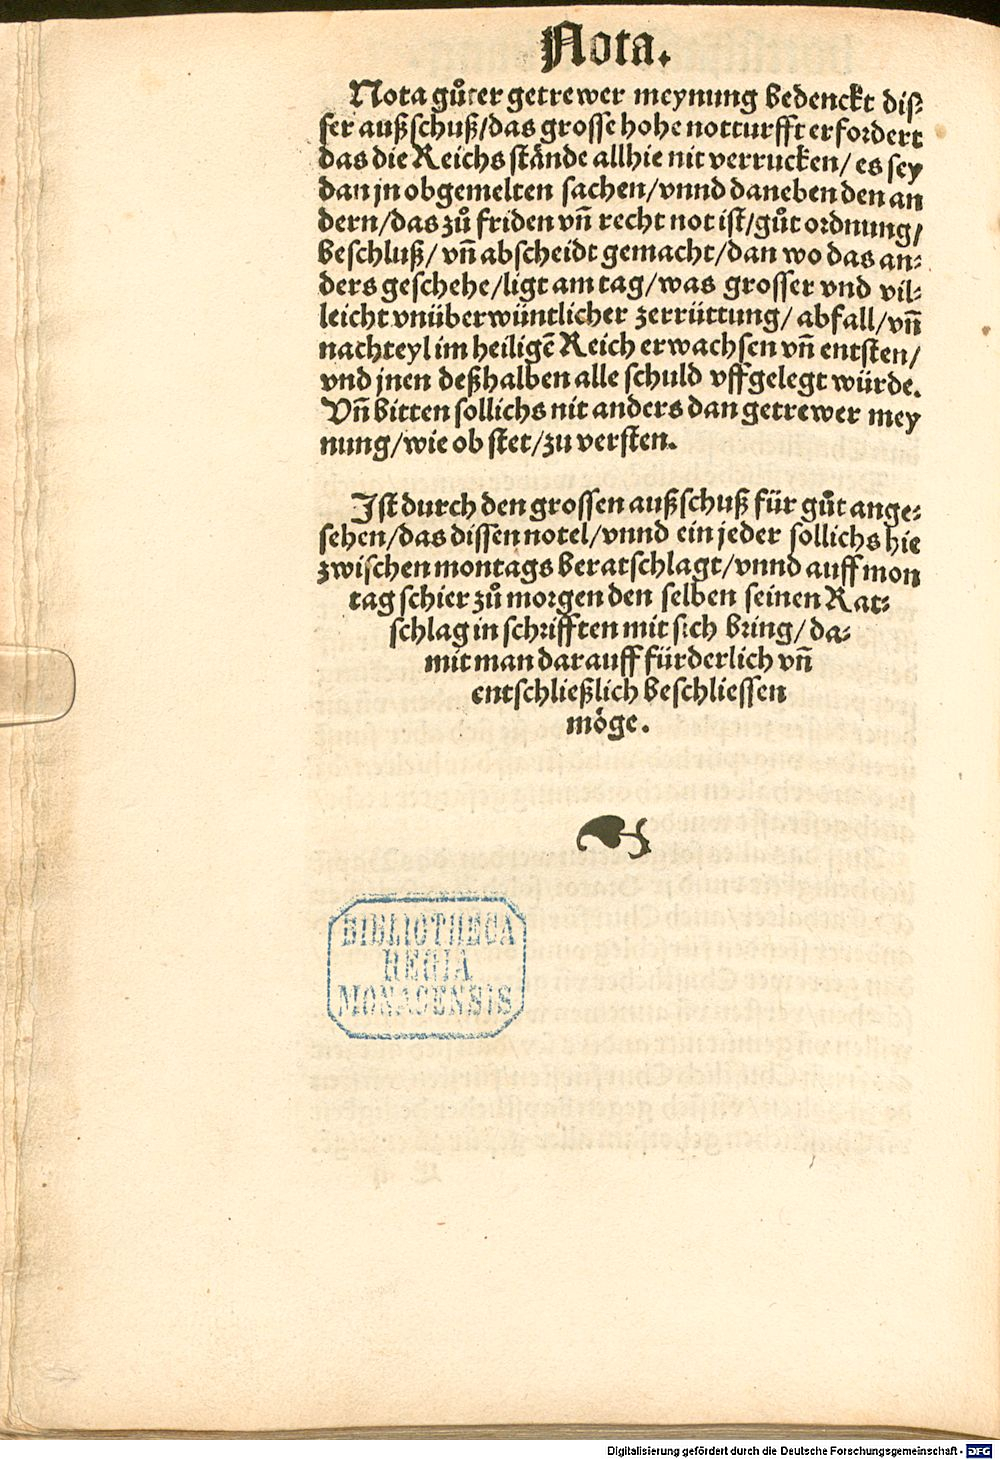 Nota.
Nota gůter getrewer meynung bedenckt dis-
ser außschuß/das grosse hohe notturfft erfordert
das die Reichs stände allhie nit verrucken/ es sey
dan jn obgemelten sachen/vnnd daneben den an
dern/das zů friden vñ recht not ist/gůt ordnung/
beschluß/ vñ abscheidt gemacht/dan wo das an-
ders geschehe/ligt am tag/was grosser vnd vil-
leicht vnüberwüntlicher zerrüttung/ abfall/vñ
nachteyl im heiligẽ Reich erwachsen vñ entsten/
vnd jnen deßhalben alle schuld vffgelegt würde.
Vñ bitten sollichs nit anders dan getrewer mey
nung/wie ob stet/zu versten.
Ist durch den grossen außschuß für gůt ange-
sehen/das dissen notel/vnnd ein jeder sollichs hie
zwischen montags beratschlagt/vnnd auff mon
tag schier zů morgen den selben seinen Rat-
schlag in schrifften mit sich bring/ da-
mit man darauff fürderlich vñ
entschließlich beschliessen
möge.
BIBLIOTHECA
REGIA
MONACENSIS
Digitalisierung gefördert durch die Deutsche Forschungsgemeinschaft - DFG